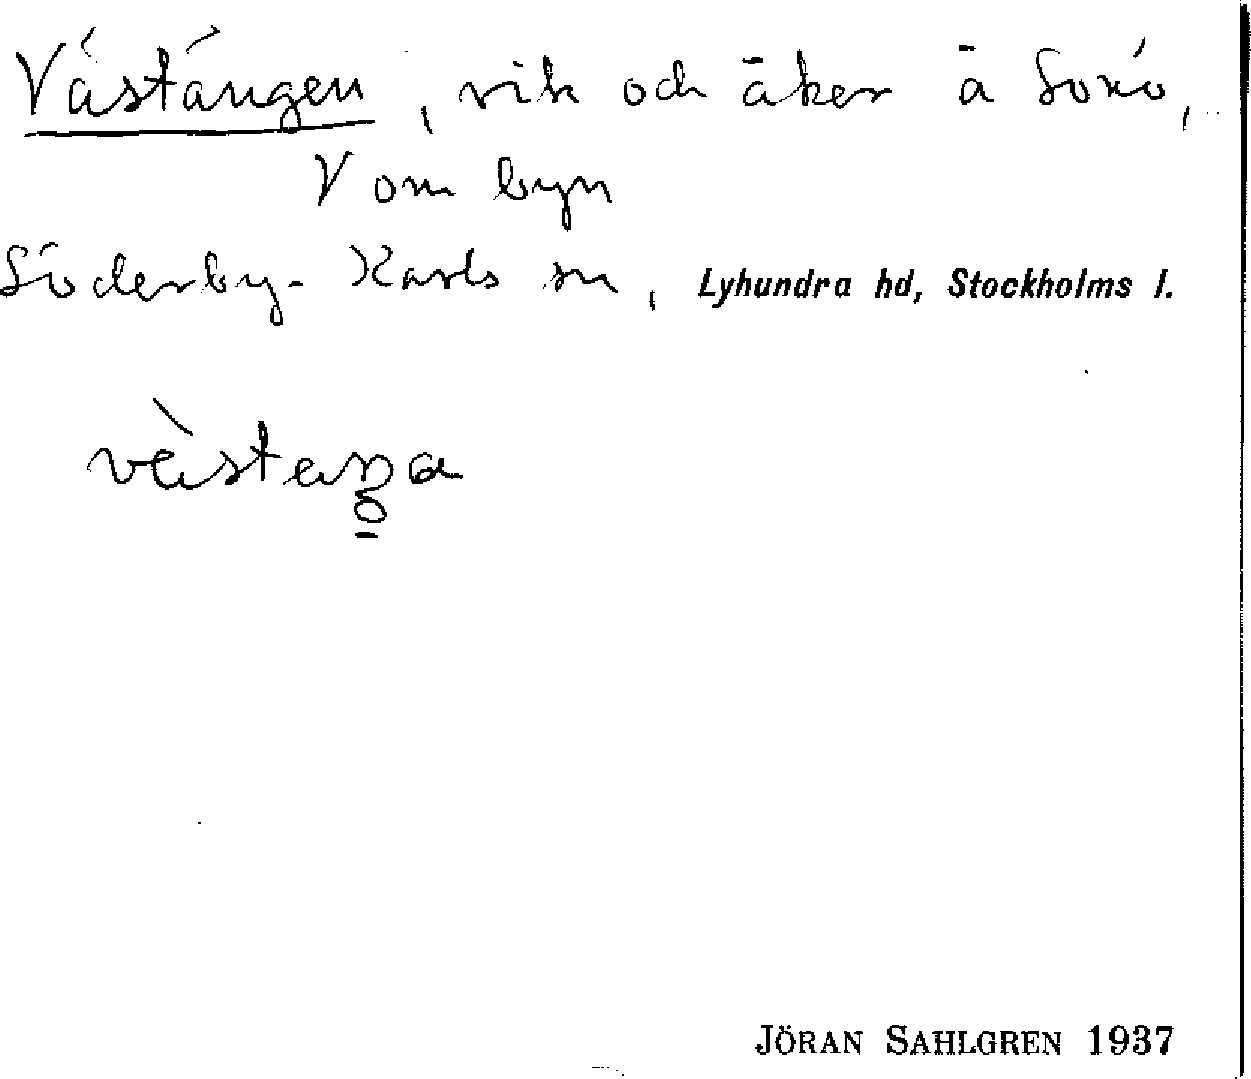 Västängen, vik och åker å Soxö,
V om byn
Söderby-Karls sn, Lyhundra hd, Stockholms l.
JÖRAN SAHLGREN 1937